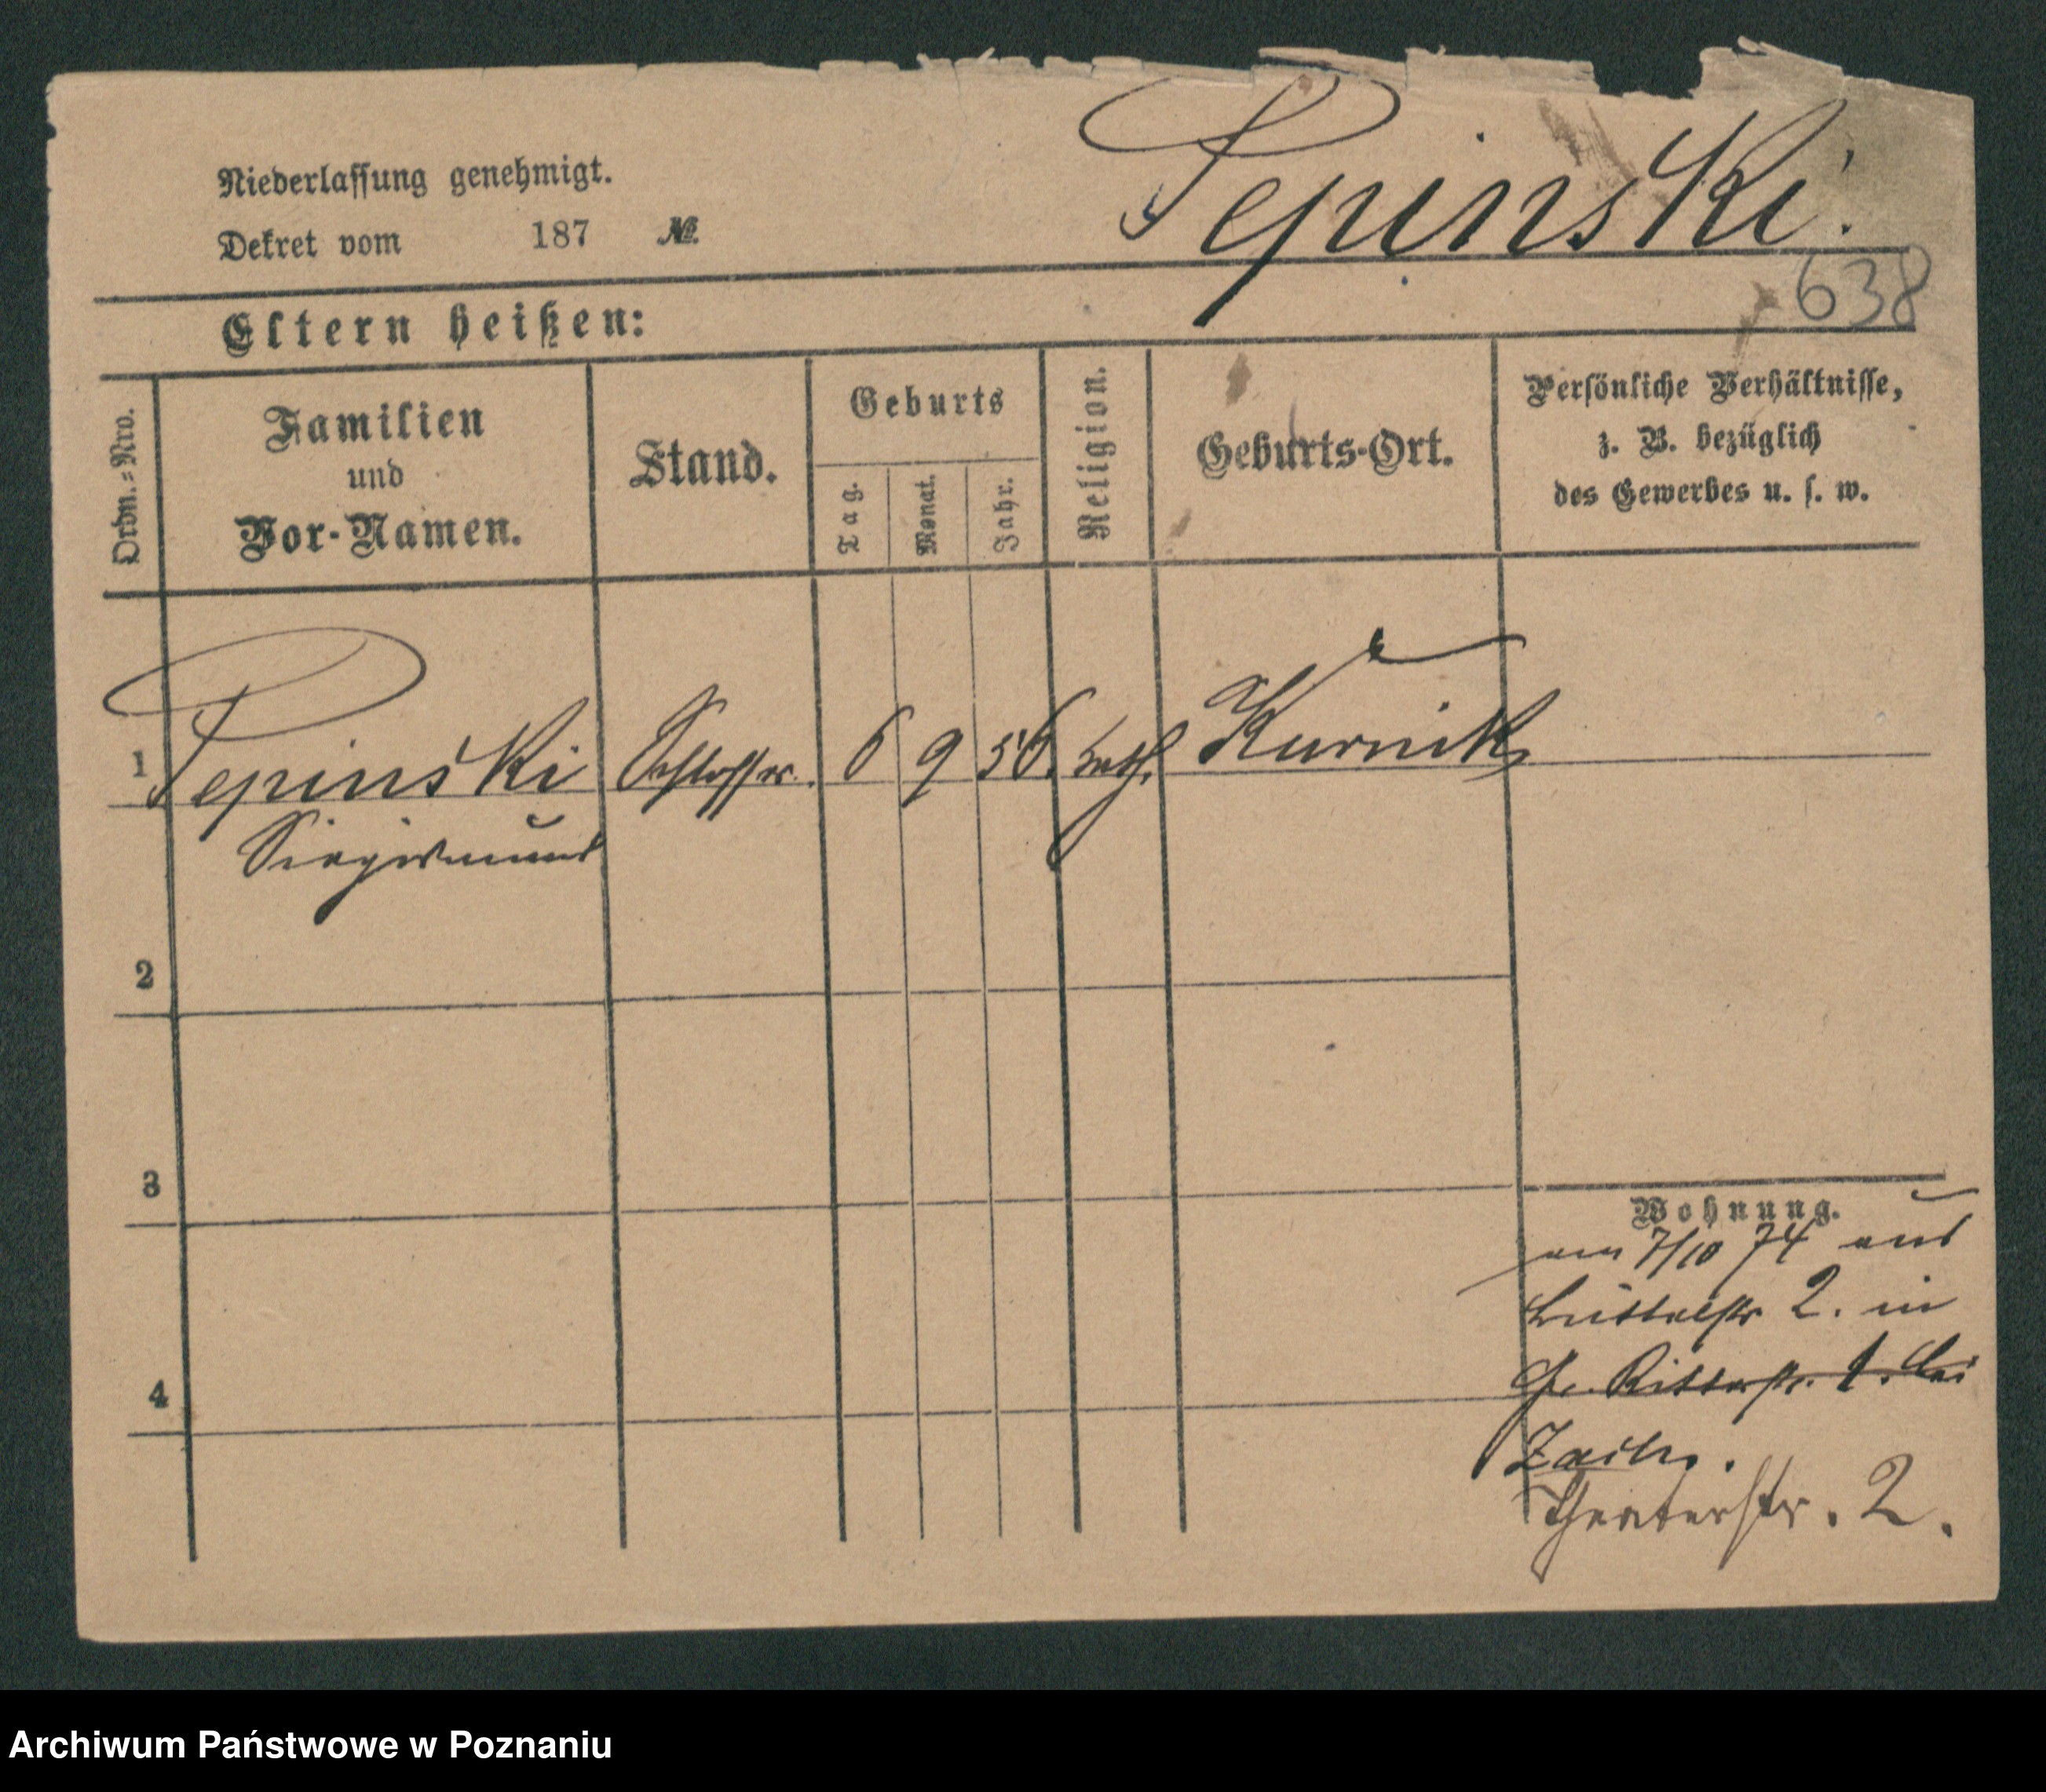 Pepinski.
Niederlassung genehmigt.
Dekret vom 187 №.
638
Eltern heißen:
Ordn.=Nro.
Familien
und
Vor-Namen.
Stand.
Geburts
Tag.
Monat.
Jahr.
Religion.
Geburts-Ort.
Persönliche Verhältnisse,
z. B. bezüglich
des Gewerbes u. s. w.
1 Pepinski Schlosser. 6 9 56. kath. Kurnik
Siegismund
2
3
Wohnung.
am 7/10 74 aus
2. in
Gr. Ritterstr. 1. bei
4
Theaterstr. 2.
Archiwum Państwowe w Poznaniu